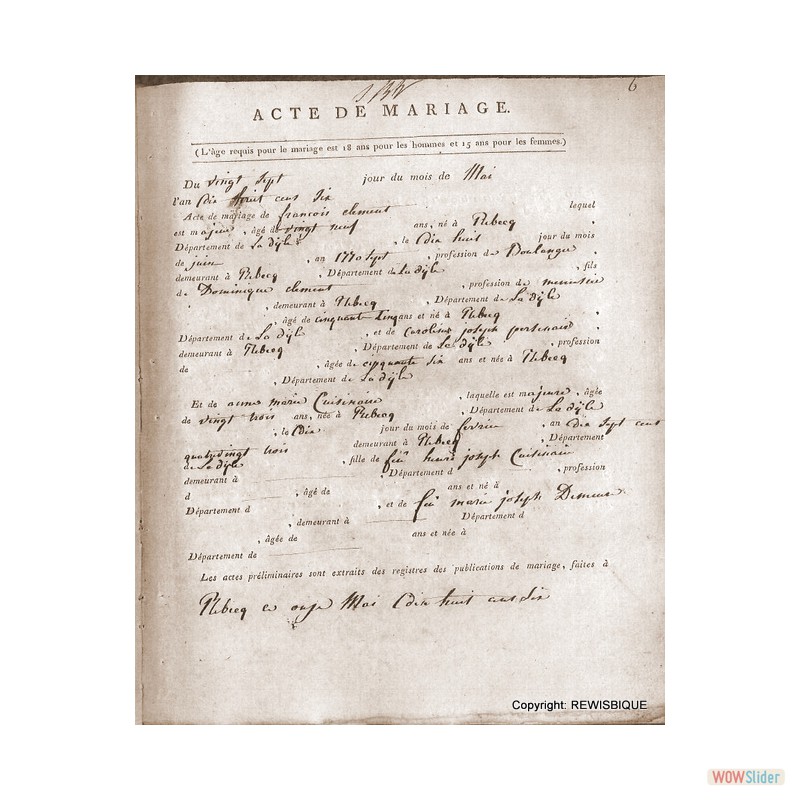 6
ACTE DE MARIAGE.
(L'âge requis pour le mariage est 18 ans pour les hommes et 15 ans pour les femmes.)
Du vingt sept jour du mois de Mai
l'an dix huit cent six
Acte de mariage de françois clement lequel
est majeur, âgé de vingt neuf ans, né à Rebecq
Département de La dÿle, le dix huit jour du mois
de juin, an 1770 sept, profession de Boulanger
demeurant à Rebecq, Département de La dÿle, fils
de Dominique clement, profession de menusier
, demeurant à Rebecq, Département de La dÿle
, âgé de cinquante cinq ans et né à Rebecq
Département de La dÿle, et de caroline joseph
demeurant à Rebecq, Département de La dÿle, profession
de , âgée de cinquante six ans et née à Rebecq
, Département de La dÿle
Et de anne marie Cuisenaire, laquelle est majeure, âgée
de vingt trois ans, née à Rebecq, Département de La dÿle
, le dix jour du mois de fevrier, an dix sept cent
quatrevingt trois demeurant à Rebecq, Département
de La dÿle, fille de feu henri joseph Cuisenaire
demeurant à , Département d , profession
d , âgé de ans et né à
Département d , et de feu marie joseph
, demeurant à Département d
, âgée de ans et née à
Département de
Les actes préliminaires sont extraits des registres des publications de mariage, faites à
Rebecq ce onze Mai dix huit cent six
Copyright: REWISBIQUE
WOWSlider